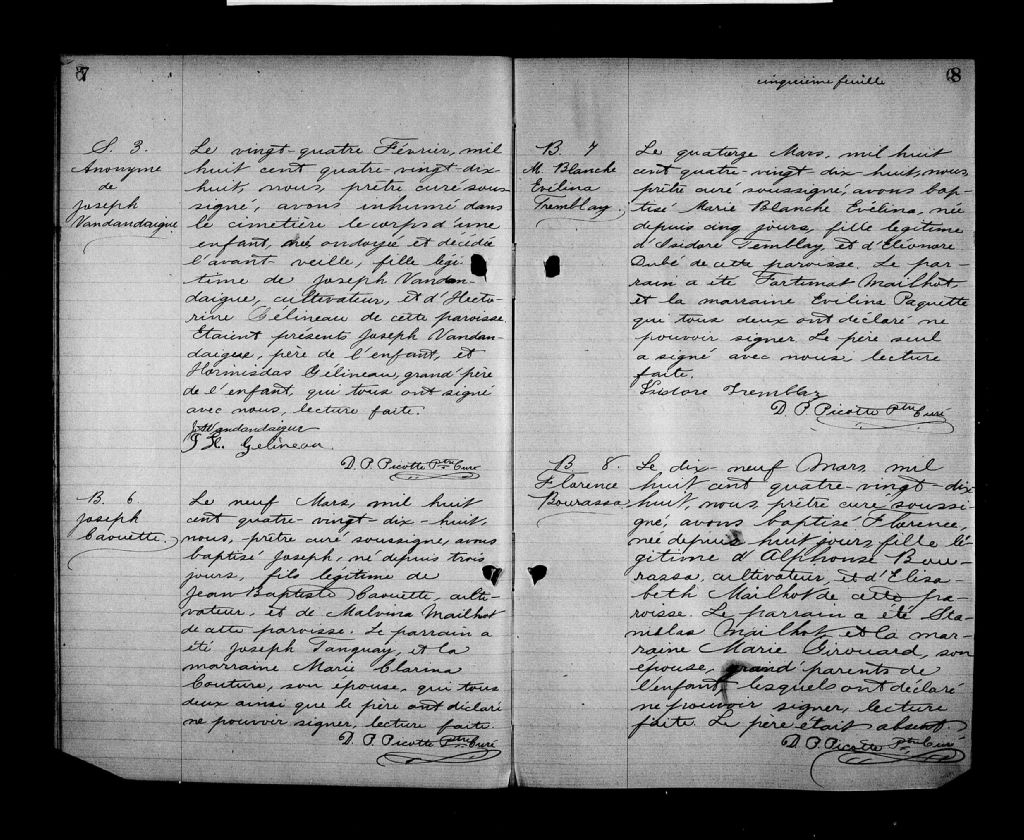 7
S. 3.
Anonyme
de
Joseph
Vandandaigue
Le vingt-quatre Février, mil
huit cent quatre-vingt-dix-
huit, nous, prêtre curé sous-
signé, avons inhumé dans
le cimetière le corps d'une
enfant, ondoyée et décédée
l'avant veille, fille légi-
time de Joseph Vandan-
daigue, cultivateur, et d'Hecto-
rine Gélineau de cette paroisse.
Etaient présents Joseph Vandan-
daigue, père de l'enfant, et
Hormisdas Gelineau, grand'père
de l'enfant, qui tous ont signé
avec nous, lecture faite.
J. Vandandaigue
J. H. Gelineau
D. P. Picotte Ptre Curé
B. 6
Joseph
Caouette.
Le neuf Mars, mil huit
cent quatre-vingt-dix-huit,
nous, prêtre curé soussigné, avons
baptisé Joseph, né depuis trois
jours, fils légitime de
Jean Baptiste Caouette, culti-
vateur, et de Malvina Mailhot
de cette paroisse. Le parrain a
été Joseph Tanguay, et la
marraine Marie Clarina
Couture, son épouse, qui tous
deux ainsi que le père ont déclaré
ne pouvoir signer, lecture faite.
D. P. Picotte Ptre Curé
cinquième feuille
8
B. 7
M. Blanche
Evélina
Tremblay.
Le quatorze Mars, mil huit
cent quatre-vingt-dix-huit, nous,
prêtre curé soussigné, avons bap-
tisé Marie Blanche Evélina, née
depuis cinq jours, fille légitime
d'Isidore Temblay, et d'Eléonore
Dubé de cette paroisse. Le par-
rain a été Fortunat Mailhot
et la marraine Evelina Paquette
qui tous deux ont déclaré ne
pouvoir signer. Le père seul
a signé avec nous lecture
faite.
Isidore Tremblay
D. P. Picotte Ptre Curé
B. 8.
Florence
Bourassa
Le dix-neuf Mars, mil
huit cent quatre-vingt-dix-
huit, nous, prêtre curé soussi-
gné, avons baptisé Florence,
née depuis huit jours, fille lé-
gitime d'Alphonse Bou-
rassa, cultivateur, et d'Elisa-
beth Mailhot de cette pa-
roisse. Le parrain a été Sta-
nislas Mailhot et la mar-
raine Marie Girouard, son
épouse, grand'parents de
l'enfant, lesquels ont déclaré
ne pouvoir signer, lecture
faite. Le père était absent.
D. P. Picotte Ptre Curé